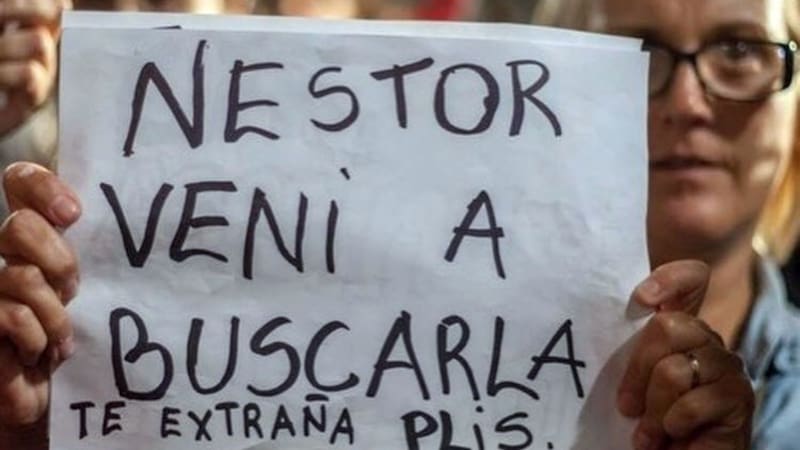 NESTOR
VENi A
BUSCARLA
TE EXTRAÑA PLiS.